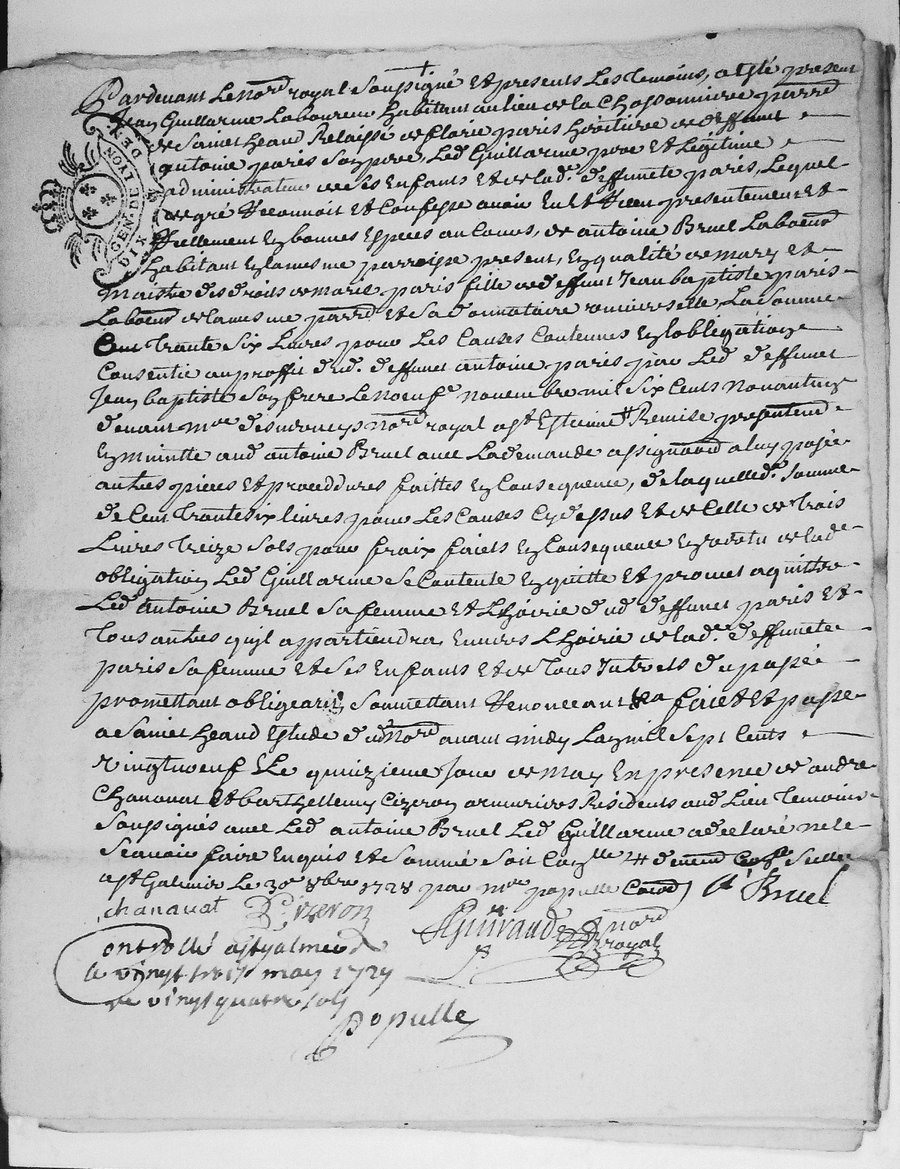 Pardevant Le Nore royal Soubsigné Et presents Les Temoins, a esté present
Jean Guillarme Laboureur habitant au lieu de la Chassonniere parre
de Sainct heand Relaissé de florie paris heritiere de deffunct
antoine paris Son pere, Led Guillarme pere Et Legitime
administrateur de ses Enfants Et de lade deffuncte paris, Lequel
de gré Reconnoit Et Confesse avoir Eu Et Receu presentement Et
Reellement En bonnes Especes au Cours, de antoine Bruel Laboeur
habitant En la mesme parroisse present, En qualité de mary Et
Maistre des droits de marie paris fille de deffunt Jean baptiste paris
Laboeur de la mesme parre Et sa donnataire universelle, La Somme
Cent Trante Six Livres pour Les Causes Contenues En L'obligation
Consentie au proffit dud. deffunct antoine paris par Led. deffunct
Jean baptiste Son frere Le noeufe novembre mil Six Cents Nonante
devant Me desmoneys Nore royal a St Estienne Remise presentemt
En minutte aud antoine Bruel avec La demande assignaon a luy posée
autres pieces Et proceddures faittes En Consequence, de laquelle de Somme
de Cent Trante six livres pour Les Causes Cy dessus Et de Celle de Trois
Livres Treize Sols pour fraix faicts En Consequence En vertu de lade
obligation Led Guillarme Se Contente En quitte Et promet aquitter
Led antoine Bruel Sa femme Et L'hoirie dud deffunct paris Et
Tous autres qu'il appartiendra Envers L'hoirie de lade deffuncte
paris Sa femme Et Ses Enfants Et de Tous Interets du passé
promettant obligeant Soumettant Renonceant &a faict Et passé
a Sainct heand Estude dud Nore avant midy Lan mil Sept Cents
vingt noeuf Et Le quinzieme Jour de may En presence de andre
Chanavat Et barthellemy Cizeron armuriers Residents aud Lieu Temoins
Soussignés avec Led antoine Bruel Led Guillarme a declaré ne le
Sçavoir faire Enquis Et Sommé Soit
a St Galmier Le 30e 8bre 1728 par Me populle A Bruel
chanavat Cizeron Guiraud nore royal
Controllé a St galmier
le vingt may 1729
vingt quatre sols
Populle
GEN. DE LYON
DIX DEN.